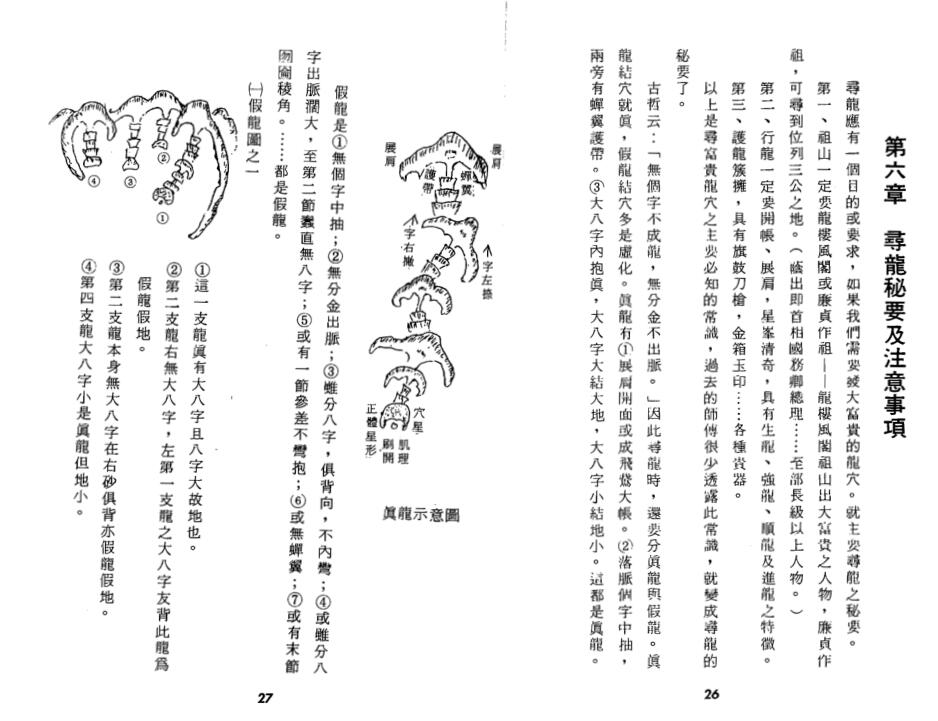 第六章　尋龍秘要及注意事項
尋龍應有一個目的或要求，如果我們需要發大富貴的龍穴。就主要尋龍之秘要。
第一、祖山一定要龍樓風閣或廉貞作祖——龍樓風閣祖山出大富貴之人物，廉貞作
祖，可尋到位列三公之地。（蔭出即首相國務卿總理……至部長級以上人物。）
第二、行龍一定要開帳、展肩，星峯清奇，具有生龍、強龍、順龍及進龍之特徵。
第三、護龍簇擁，具有旗鼓刀槍，金箱玉印……各種貴器。
以上是尋富貴龍穴之主要必知的常識，過去的師傅很少透露此常識，就變成尋龍的
秘要了。
古哲云：「無個字不成龍，無分金不出脈。」因此尋龍時，還要分眞龍與假龍。眞
龍結穴就眞，假龍結穴多是虛化。眞龍有①展肩開面或成飛蛾大帳。②落脈個字中抽，
兩旁有蟬翼護帶。③大八字內抱眞，大八字大結大地，大八字小結地小。這都是眞龍。
26
展肩
展肩
蟬翼
護帶
个字左捺
个字右撇
穴星
肌理
刷開
正體星形
眞龍示意圖
假龍是①無個字中抽；②無分金出脈；③雖分八字，俱背向，不內彎；④或雖分八
字出脈濶大，至第二節蠢直無八字；⑤或有一節參差不彎抱；⑥或無蟬翼；⑦或有末節
囫圇稜角。……都是假龍。
㈠假龍圖之一
①
②
③
④
①這一支龍眞有大八字且八字大故地也。
②第二支龍右無大八字，左第一支龍之大八字友背此龍爲
假龍假地。
③第二支龍本身無大八字在右砂俱背亦假龍假地。
④第四支龍大八字小是眞龍但地小。
27